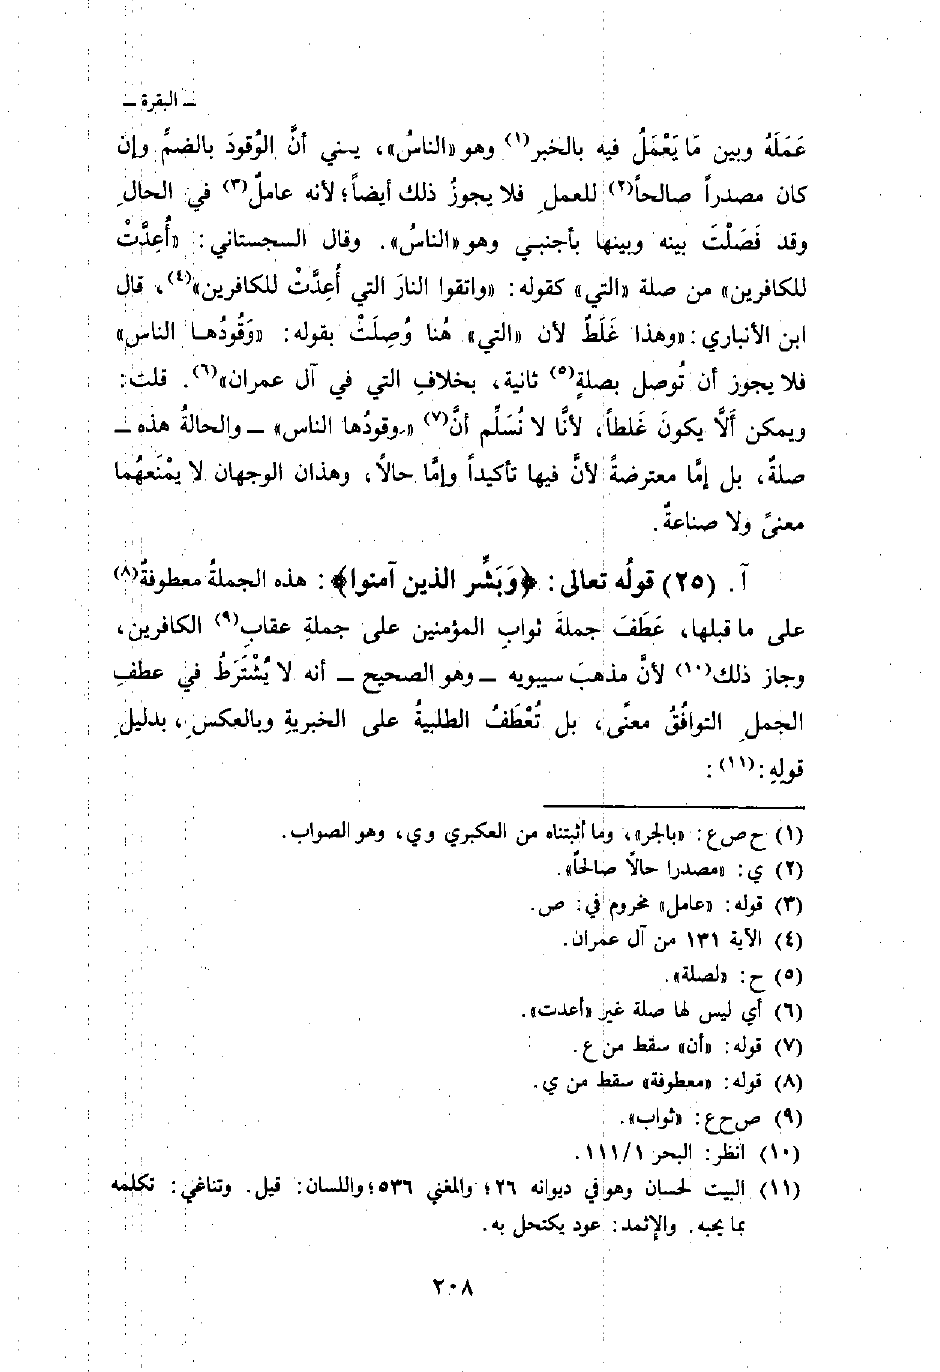 ـ البقرة ـ
عَمَلَهُ وبين مَا يَعْمَلُ فيه بالخبر(١) وهو «الناسُ»، يعني أنَّ الوُقودَ بالضمِّ وإن
كان مصدراً صالحاً(٢) للعملِ فلا يجوزُ ذلك أيضاً؛ لأنه عاملٌ(٣) في الحالِ
وقد فَصَلْتَ بينه وبينها بأجنبي وهو «الناسُ». وقال السجستاني: «أُعِدَّتْ
للكافرين» من صلة «التي» كقوله: «واتقوا النارَ التي أُعِدَّتْ للكافرين»(٤)، قال
ابن الأنباري: «وهذا غَلَطٌ لأن «التي» هُنا وُصِلَتْ بقوله: «وَقُودُهـا الناس»
فلا يجوز أن تُوصل بصلةٍ(٥) ثانية، بخلافِ التي في آل عمران»(٦). قلت:
ويمكن أَلَّا يكونَ غَلطاً، لأنَّا لا نُسَلِّم أنَّ(٧) «وقودُها الناس» ــ والحالةُ هذه ــ
صلةٌ، بل إمَّا معترضةً لأنَّ فيها تأكيداً وإمَّا حالاً، وهذان الوجهان لا يمْنَعهُما
معنىً ولا صناعةٌ.
آ. (٢٥) قولُه تعالى: ﴿وَبَشِّرِ الذين آمنوا﴾: هذه الجملةُ معطوفةٌ(٨)
على ما قبلها، عَطَفَ جملةَ ثوابِ المؤمنين على جملةِ عقابِ(٩) الكافرين،
وجاز ذلك(١٠) لأنَّ مذهبَ سيبويه ــ وهو الصحيح ــ أنه لا يُشْتَرَطُ في عطفِ
الجملِ التوافُقُ معنًى، بل تُعْطَفُ الطلبيةُ على الخبريةِ وبالعكسِ، بدليلِ
قولِهِ:(١١):
(١) ح ص ع: «بالجر»، وما أثبتناه من العكبري وي، وهو الصواب.
(٢) ي: «مصدرا حالاً صالحاً».
(٣) قوله: «عامل» مخروم في: ص.
(٤) الآية ١٣١ من آل عمران.
(٥) ح: «لصلة».
(٦) أي ليس لها صلة غير «أعدت».
(٧) قوله: «أن» سقط من ع.
(٨) قوله: «معطوفة» سقط من ي.
(٩) ص ح ع: «ثواب».
(١٠) انظر: البحر ١١١/١.
(١١) البيت لحسان وهو في ديوانه ٢٦؛ والمغني ٥٣٦؛ واللسان: قيل. وتناغي: تكلمه
بما يحبه. والإثمد: عود يكتحل به.
٢٠٨